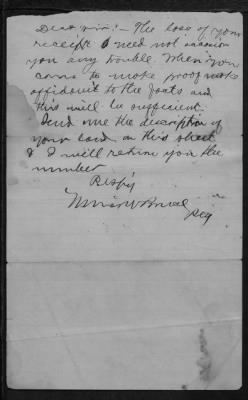 Dear Sir:- The loss of your
receipt need not occasion
you any trouble. When you
come to make proof make
affidavit to the facts and
this will be sufficient.
Send me the description of
your land on this sheet
& I will return you the
number
Resp'y
Reg